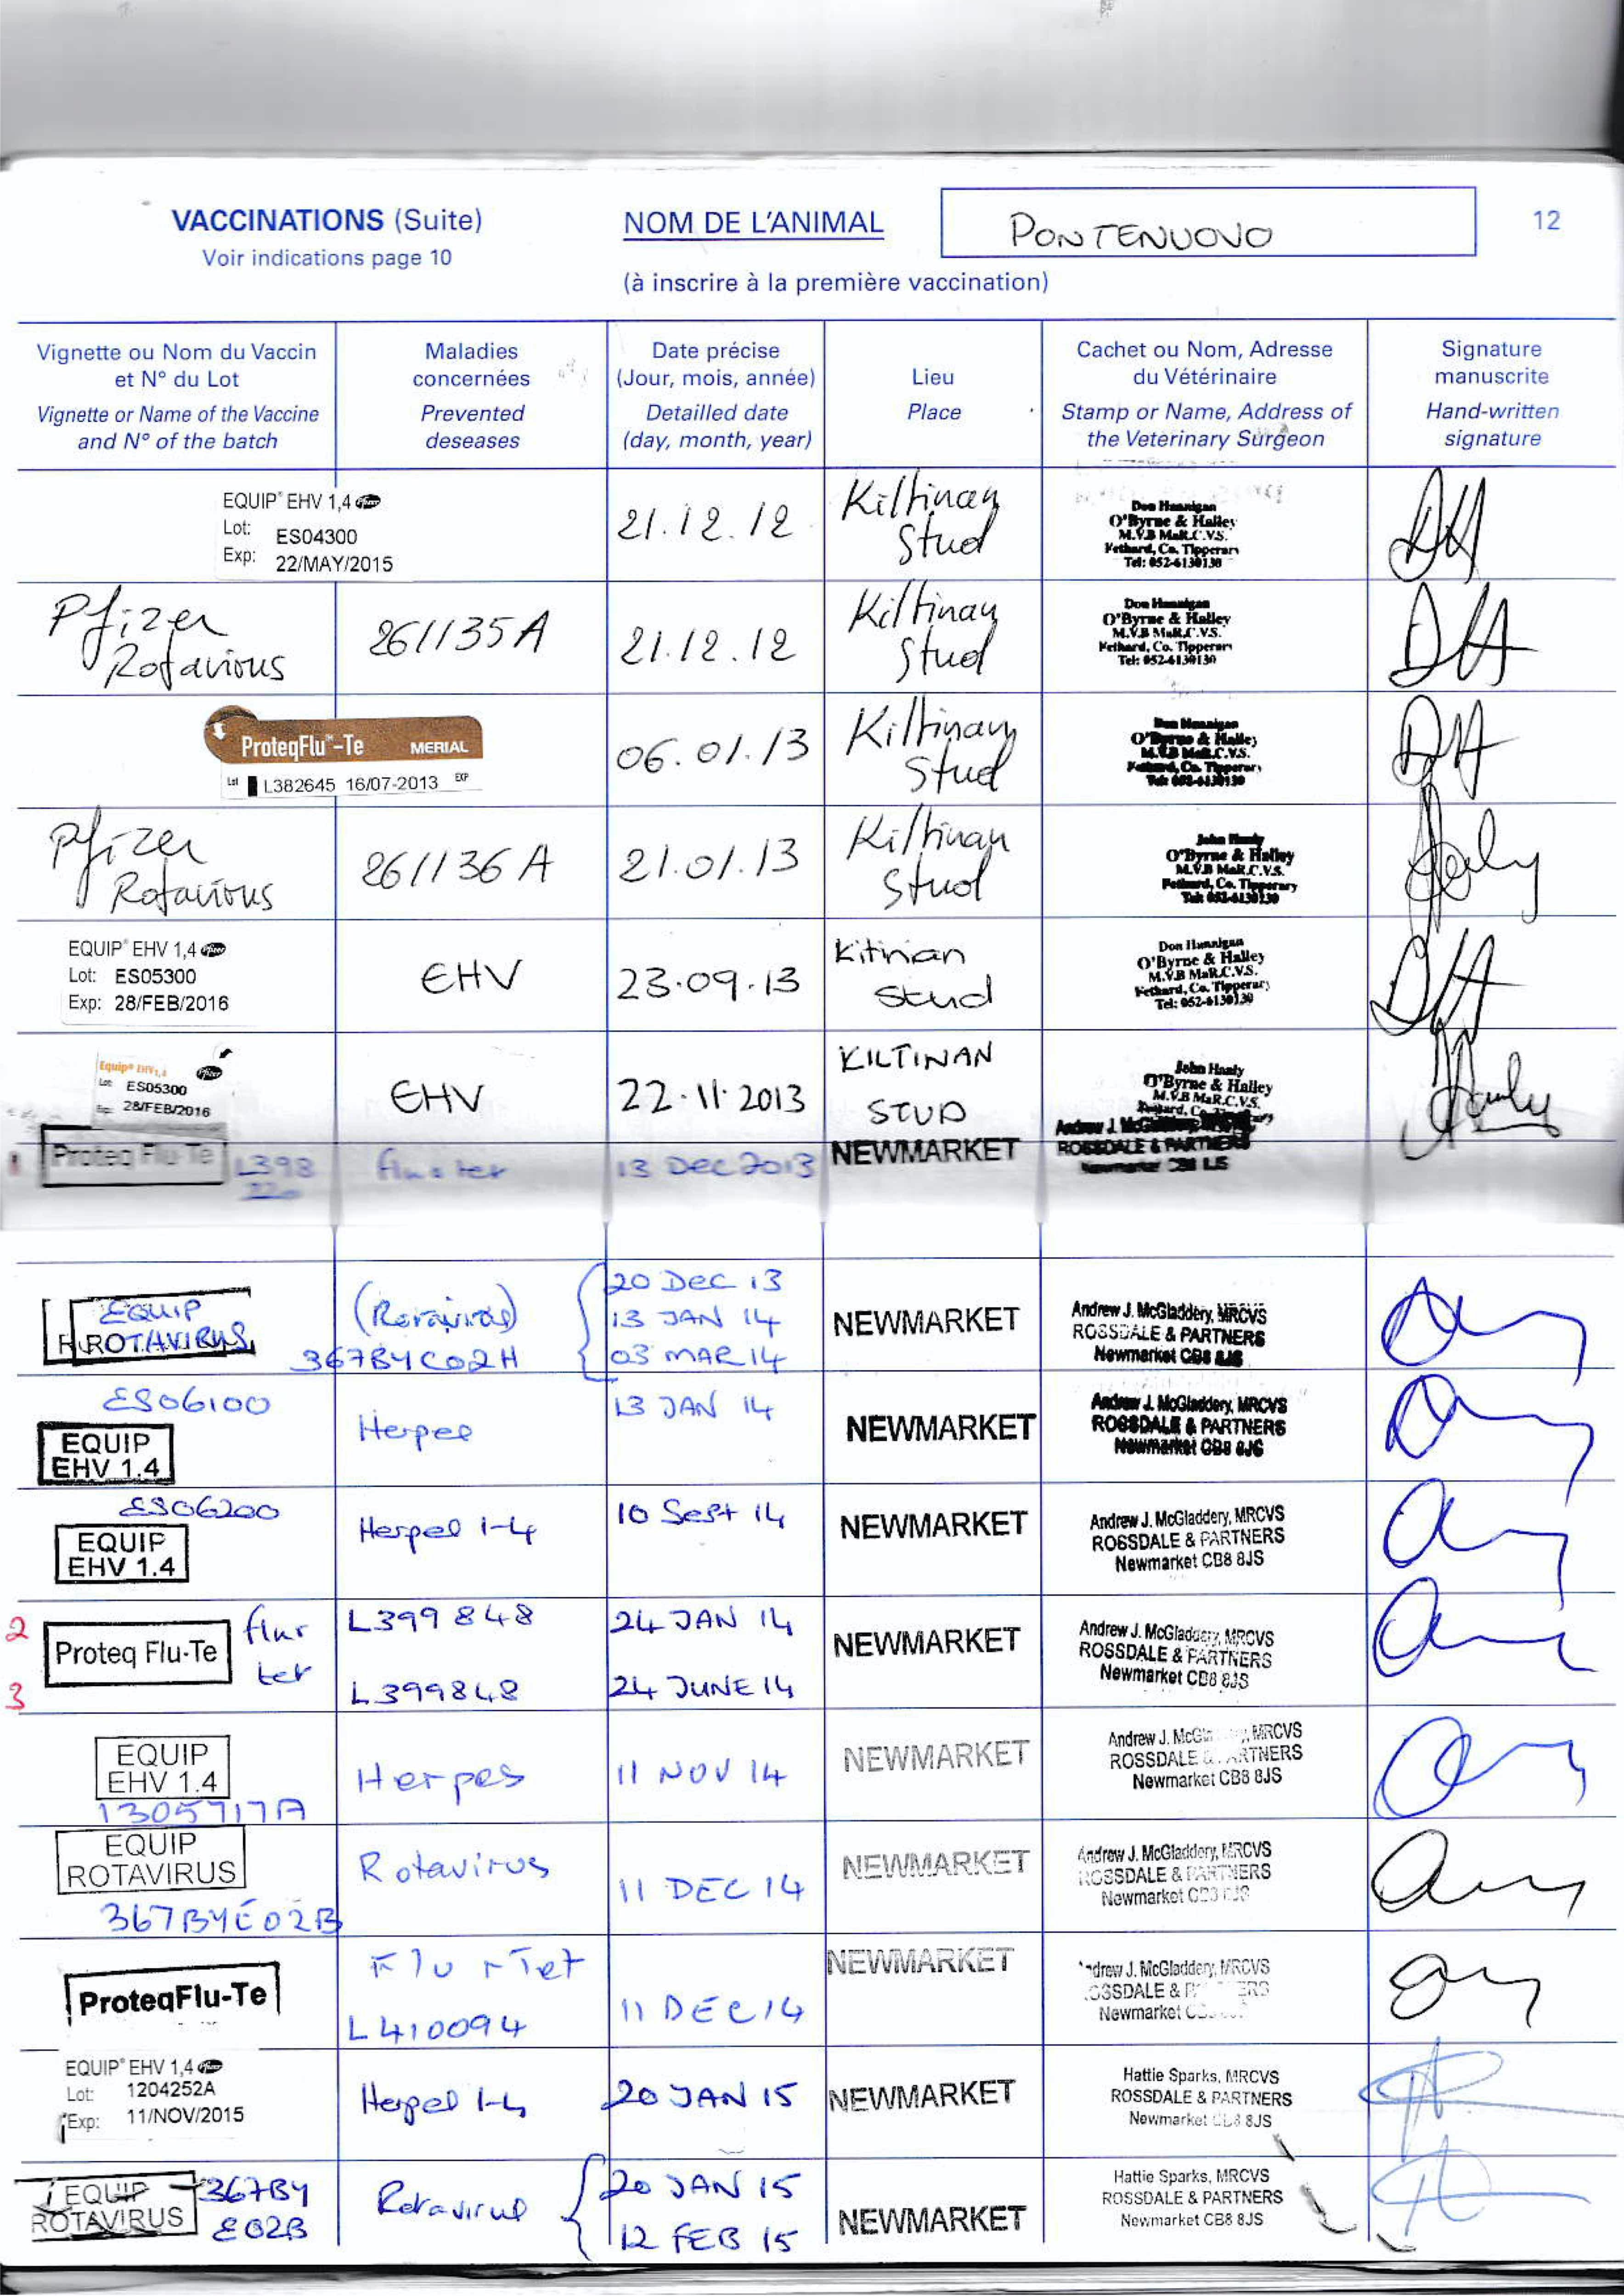 VACCINATIONS (Suite)
Voir indications page 10
NOM DE L'ANIMAL
PONTENUOVO
12
(à inscrire à la première vaccination)
Vignette ou Nom du Vaccin
et N° du Lot
Vignette or Name of the Vaccine
and N° of the batch
Maladies
concernées
Prevented
deseases
Date précise
(Jour, mois, année)
Detailled date
(day, month, year)
Lieu
Place
Cachet ou Nom, Adresse
du Vétérinaire
Stamp or Name, Address of
the Veterinary Surgeon
Signature
manuscrite
Hand-written
signature
EQUIP® EHV 1,4 Pfizer
Lot: ES04300
Exp: 22/MAY/2015
21.12.12
Kiltinan
Stud
Don Hannigan
O'Byrne & Halley
M.V.B MaR.C.V.S.
Fethard, Co. Tipperary
Tel: 052-6130130
DH
Pfizer
Rotavirus
261135A
21.12.12
Kiltinan
Stud
Don Hannigan
O'Byrne & Halley
M.V.B MaR.C.V.S.
Fethard, Co. Tipperary
Tel: 052-6130130
DH
ProteqFlu™-Te MERIAL
Lot L382645 16/07-2013 EXP
06.01.13
Kiltinan
Stud
Don Hannigan
O'Byrne & Halley
M.V.B MaR.C.V.S.
Fethard, Co. Tipperary
Tel: 052-6130130
DH
Pfizer
Rotavirus
261136A
21.01.13
Kiltinan
Stud
O'Byrne & Halley
M.V.B MaR.C.V.S.
Fethard, Co. Tipperary
Tel: 052-6130130
EQUIP® EHV 1,4 Pfizer
Lot: ES05300
Exp: 28/FEB/2016
EHV
23.09.13
Kitinan
Stud
Don Hannigan
O'Byrne & Halley
M.V.B MaR.C.V.S.
Fethard, Co. Tipperary
Tel: 052-6130130
DH
Equip® EHV 1,4 Pfizer
Lot: ES05300
Exp: 28/FEB/2016
EHV
22.11.2013
KILTINAN
STUD
O'Byrne & Halley
M.V.B MaR.C.V.S.
1
Proteq Flu-Te
L398
220
flu & ter
13 DEC 2013
NEWMARKET
Andrew J. McGladdery
ROSSDALE & PARTNERS
Newmarket CB8
EQUIP
ROTAVIRUS
(Rotavirus)
367BYC02H
20 DEC 13
13 JAN 14
03 MAR 14
NEWMARKET
Andrew J. McGladdery, MRCVS
ROSSDALE & PARTNERS
Newmarket CB8 8JS
ES06100
EQUIP
EHV 1.4
Herpes
13 JAN 14
NEWMARKET
Andrew J. McGladdery, MRCVS
ROSSDALE & PARTNERS
Newmarket CB8 8JS
ES06200
EQUIP
EHV 1.4
Herpes 1-4
10 Sept 14
NEWMARKET
Andrew J. McGladdery, MRCVS
ROSSDALE & PARTNERS
Newmarket CB8 8JS
2
3
Proteq Flu-Te
flu &
tet
L399848
L399848
24 JAN 14
24 JUNE 14
NEWMARKET
Andrew J. McGladdery, MRCVS
ROSSDALE & PARTNERS
Newmarket CB8 8JS
EQUIP
EHV 1.4
1305717A
Herpes
11 NOV 14
NEWMARKET
Andrew J. McGladdery, MRCVS
ROSSDALE & PARTNERS
Newmarket CB8 8JS
EQUIP
ROTAVIRUS
367BYE02B
Rotavirus
11 DEC 14
NEWMARKET
Andrew J. McGladdery, MRCVS
ROSSDALE & PARTNERS
Newmarket CB8 8JS
ProteqFlu-Te
Flu + Tet
L410094
11 DEC 14
NEWMARKET
Andrew J. McGladdery, MRCVS
ROSSDALE & PARTNERS
Newmarket
EQUIP® EHV 1,4 Pfizer
Lot: 1204252A
Exp: 11/NOV/2015
Herpes 1-4
20 JAN 15
NEWMARKET
Hattie Sparks, MRCVS
ROSSDALE & PARTNERS
Newmarket CB8 8JS
EQUIP
ROTAVIRUS
367BY
E02B
Rotavirus
20 JAN 15
12 FEB 15
NEWMARKET
Hattie Sparks, MRCVS
ROSSDALE & PARTNERS
Newmarket CB8 8JS